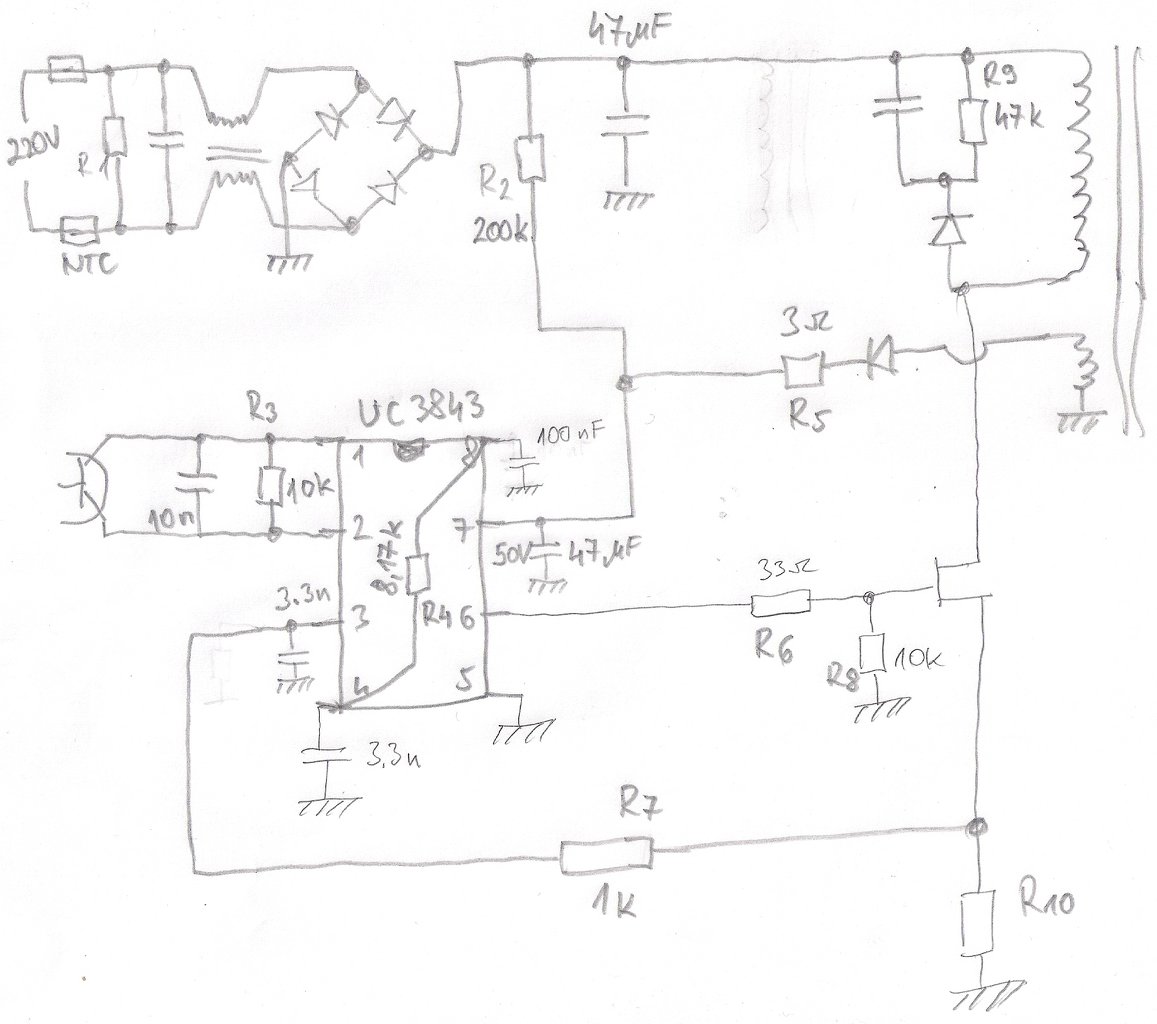 47µF
220V
R1
NTC
R2
200k
R9
47k
3Ω
R5
R3
UC3843
1
8
100nF
10k
10n
2
7
50V
47µF
8,17k
R4
3.3n
3
6
33Ω
R6
R8
10k
4
5
3,3n
R7
1K
R10